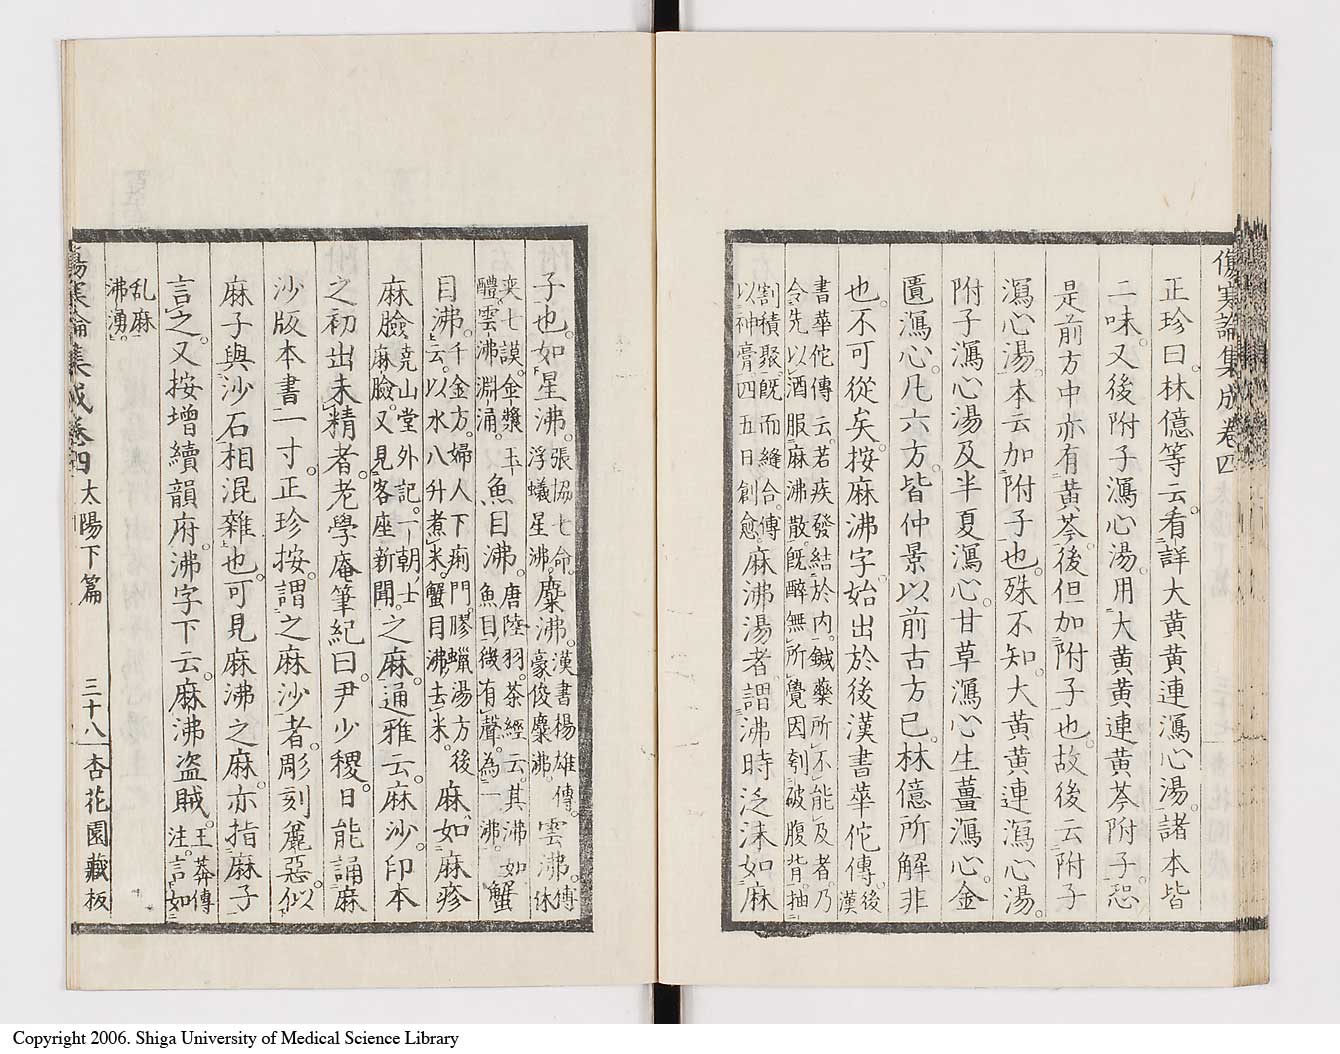 傷寒論集成卷四
正珍曰。林億等云。看詳大黄黄連瀉心湯。諸本皆
二味。又後附子瀉心湯。用大黄黄連黄芩附子。恐
是前方中亦有黄芩。後但加附子也。故後云附子
瀉心湯。本云加附子也。殊不知。大黄黄連瀉心湯。
附子瀉心湯及半夏瀉心。甘草瀉心生薑瀉心金
匱瀉心。凡六方。皆仲景以前古方已。林億所解非
也。不可從矣。按麻沸字。始出於後漢書華佗傳。後漢
書華佗傳云。若疾發結於内。鍼藥所不能及者。乃
令先以酒服麻沸散。既醉無所覺。因刳破腹背。抽
割積聚。既而縫合。傳
以神膏。四五日創愈。麻沸湯者。謂沸時泛沫如麻
子也。如星沸。張協七命。浮蟻星沸。麋沸。漢書楊雄傳。豪俊麋沸。雲沸。傅休
奕七謨。金漿玉
醴。雲沸淵涌。魚目沸。唐陸羽。茶經云。其沸如魚目。微有聲。為一沸。蟹
目沸。千金方。婦人下痢門。膠蠟湯方後云。以水八升煮米。蟹目沸。去米。麻。如麻疹
麻臉。堯山堂外記。一朝士麻臉。又見客座新聞。之麻。通雅云。麻沙。印本
之初出未精者。老學庵筆紀曰。尹少稷。日能誦麻
沙版本書一寸。正珍按。謂之麻沙者。彫刻麁惡。似
麻子與沙石相混雜也。可見麻沸之麻。亦指麻子
言之。又按增續韻府。沸字下云。麻沸盜賊。王莽傳注。言如
乱麻
沸湧。
傷寒論集成卷四 太陽下篇 三十八 杏花園藏板